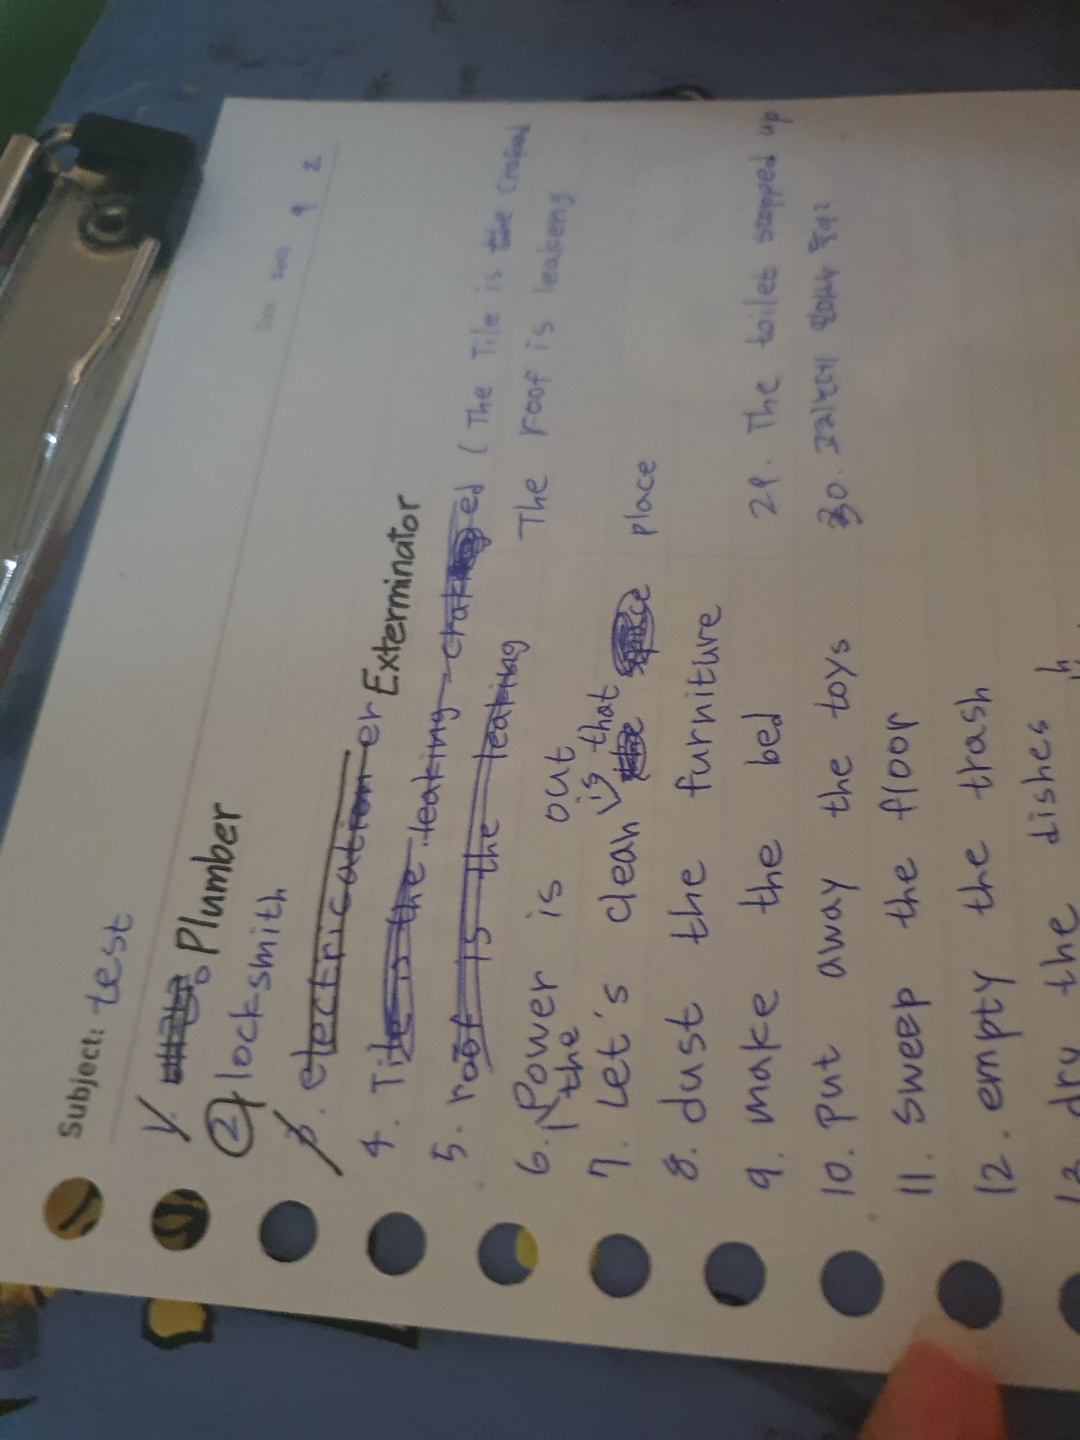 Subject: test
9 2
1. Plumber
2. locksmith
3. electricationer Exterminator
4. Tile is the leaking craked (The Tile is the
5. roof is the leaking The roof is leakeng
6. the Power is out
7. Let's clean is that place
8. dust the furniture
9. make the bed
29. The toilet stopped up
10. put away the toys
30.
11. sweep the floor
12. empty the trash
13. dry the dishes